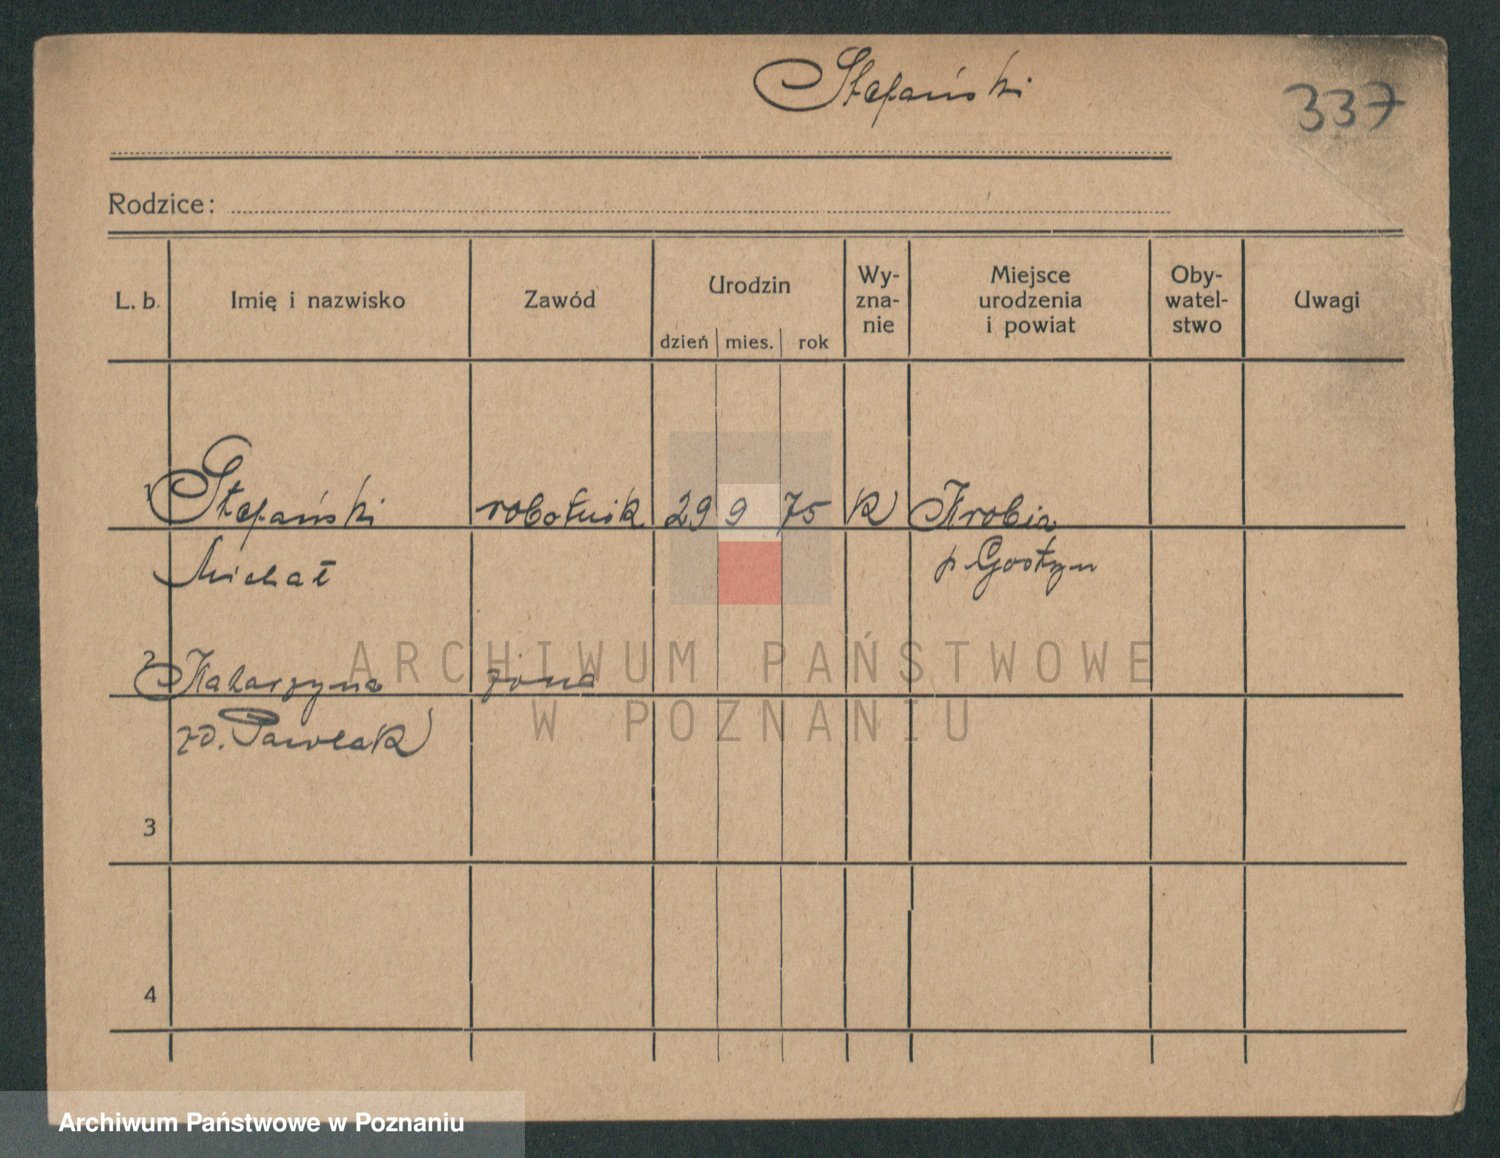 Stefański
337
Rodzice:
L. b. Imię i nazwisko Zawód Urodzin Wy- Miejsce Oby- Uwagi
zna- urodzenia watel-
nie i powiat stwo
dzień mies. rok
1 Stefański robotnik 29 9 75 K Krobia
Michał p. Gostyn
2 Katarzyna żona
zd. Pawlak
3
4
ARCHIWUM PAŃSTWOWE
W POZNANIU
Archiwum Państwowe w Poznaniu